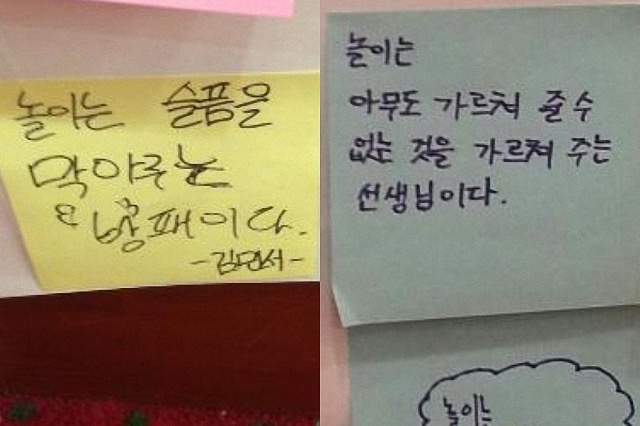 놀이는 슬픔을
막아주는
방패이다.
-김민서-
놀이는
아무도 가르쳐 줄 수
없는 것을 가르쳐 주는
선생님이다.
놀이는